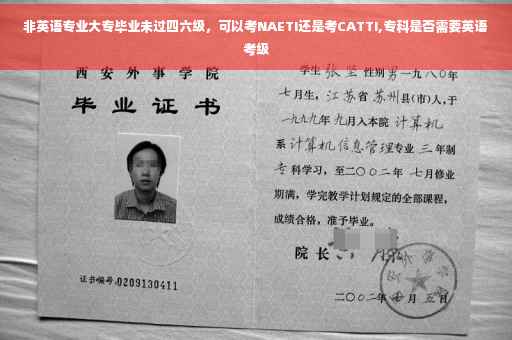 非英语专业大专毕业未过四六级，可以考NAETI还是考CATTI,专科是否需要英语
考级
西安外事学院
毕业证书
证书编号:0209130411
学生张坚性别男一九八〇年
七月生，江苏省苏州县(市)人,于
一九九九年九月入本院计算机
系计算机信息管理专业三年制
专科学习，至二〇〇二年七月修业
期满，学完教学计划规定的全部课程，
成绩合格，准予毕业。
院长
二〇〇二年七月五日